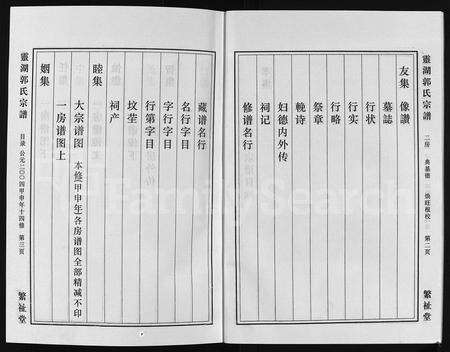 靈湖郭氏宗譜
二房
典基德
焕旺根校
第二頁
繁祉堂
友集 像讃
墓誌
行状
行实
行略
祭章
輓诗
妇德内外传
祠记
修谱名行
藏谱名行
名行字目
字行字目
行第字目
坟茔
祠产
睦集
大宗谱图 本修甲申年各房谱图全部精减不印
一房谱图上
姻集
靈湖郭氏宗譜
目录 公元二〇〇四甲申年十四修 第三頁
繁祉堂
FamilySearch